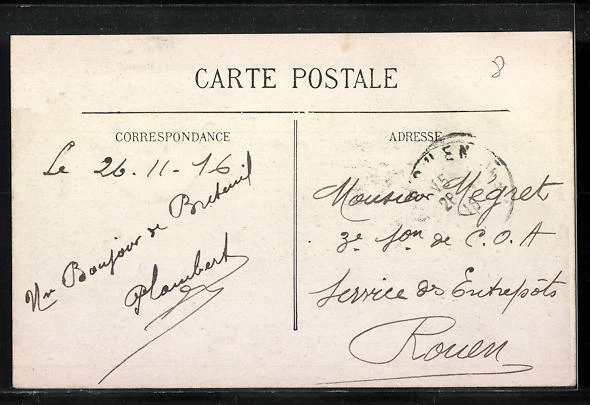 8
CARTE POSTALE
CORRESPONDANCE
Le 26.11-16
Un Bonjour de Breteuil
Plambert
ADRESSE
ROUEN
Monsieur Megret
3e son de C.O.A
Service des Entrepôts
Rouen